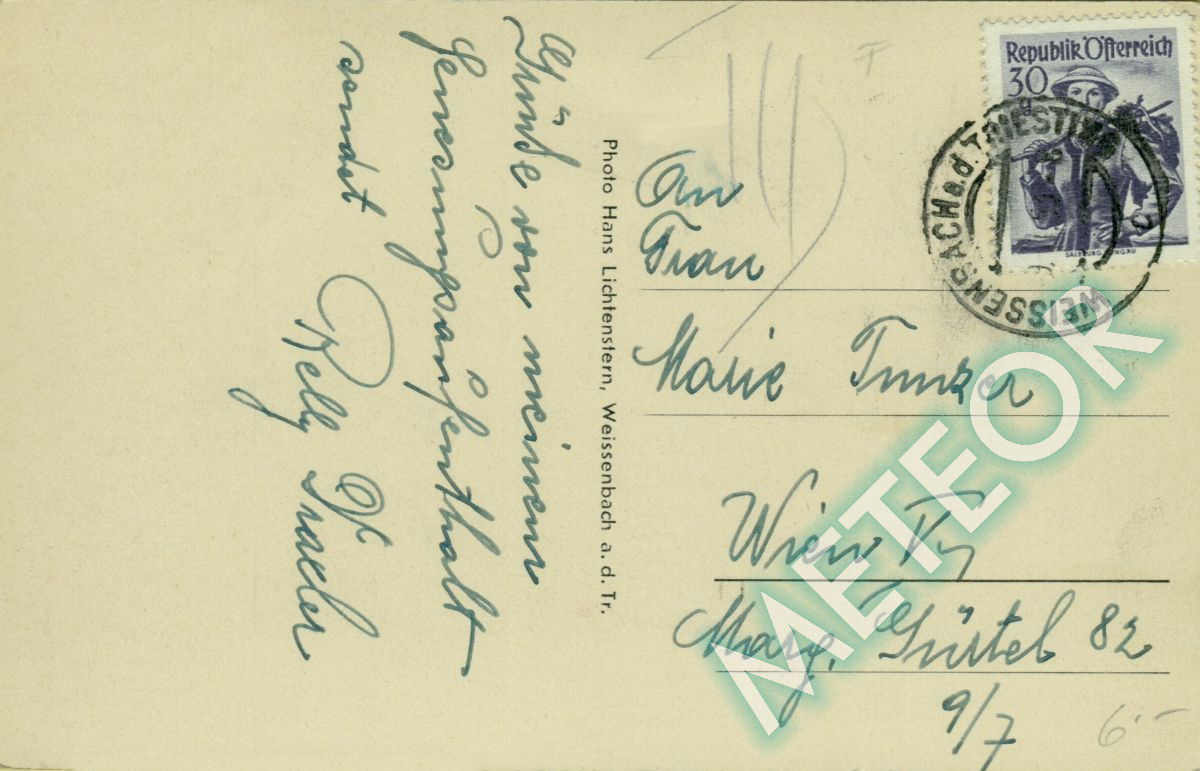 Grüße von meinem
Genesungsaufenthalt
sendet
Nelly
Photo Hans Lichtenstern, Weissenbach a. d. Tr.
Republik Österreich
30
WEISSENBACH a.d. TRIESTING
An
Frau
Marie
Wien
Marg. Gürtel 82
9/7
6.-
METEOR